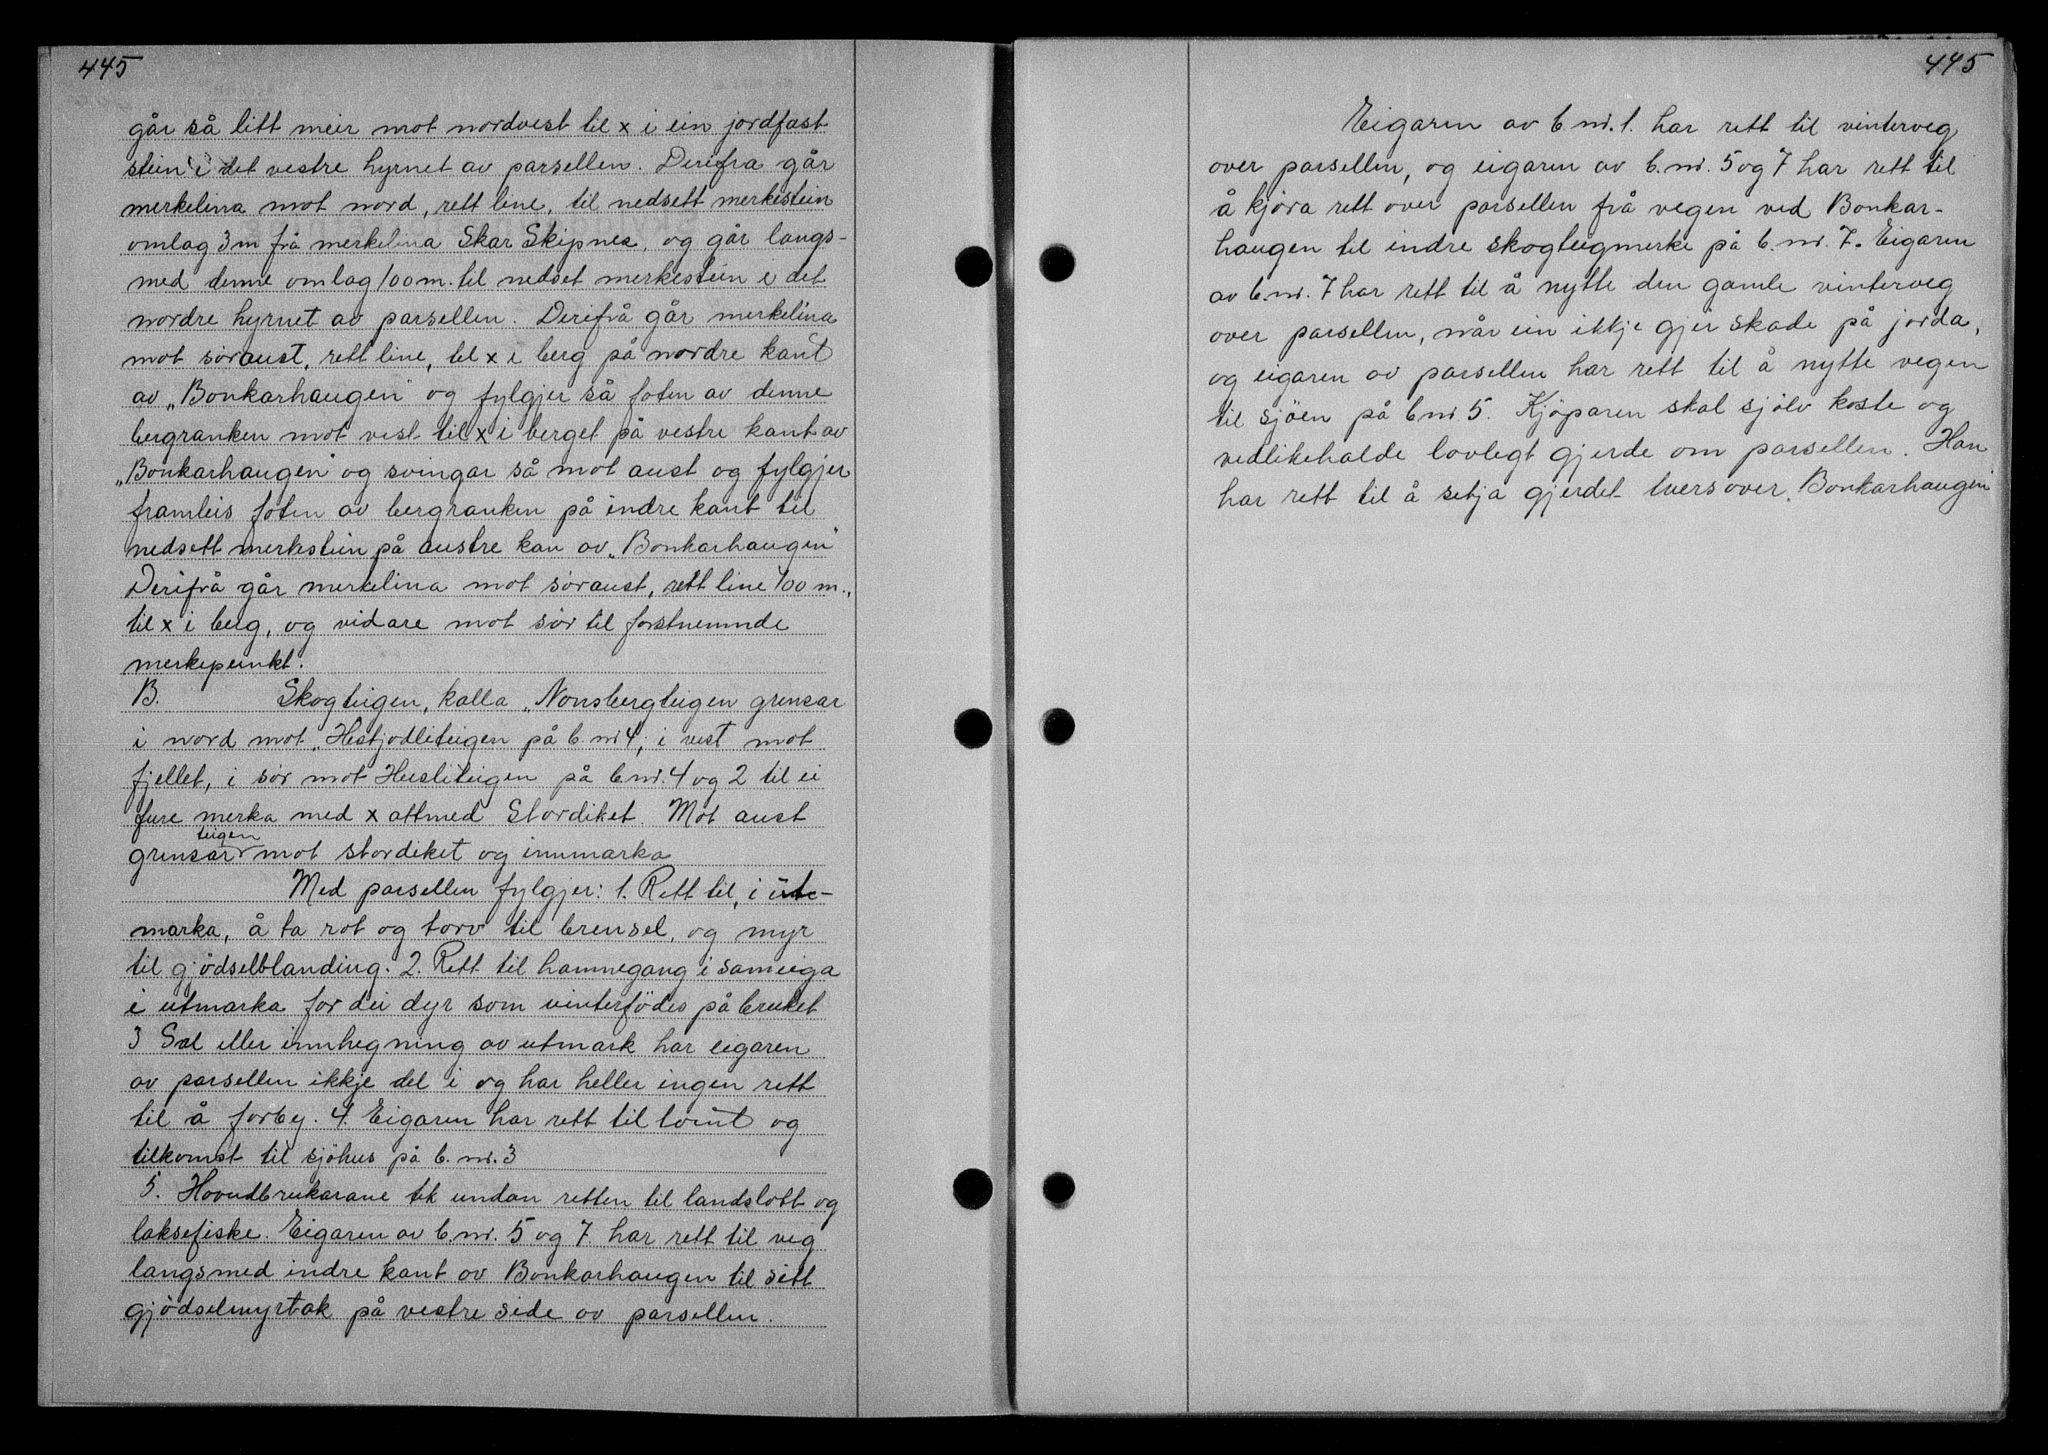 445
går så litt meir mot nordvest til x i ein jordfast
stein i det vestre hyrnet av parsellen. Derifra går
merkelina mot nord, rett line, til nedsett merkestein
omlag 3 m frå merkelina Skar Skipnes, og går langs-
med denne omlag 100 m. til nedset merkestein i det
nordre hyrnet av parsellen. Derifrå går merkelina
mot søraust, rett line, til x i berg på nordre kant
av „Bonkarhaugen" og fylgjer så foten av denne
bergranken mot vest til x i berget på vestre kant av
„Bonkarhaugen" og svingar så mot aust og fylgjer
framleis foten av bergranken på indre kant til
nedsett merkestein på austre kan av „Bonkarhaugen"
Derifrå går merkelina mot søraust, rett line 100 m.,
til x i berg, og vidare mot sør til forstnemnde
merkepunkt.
B. Skogteigen, kalla „Nonsbergteigen grensar
i nord mot „Hestjodliteigen på b. nr 4, i vest mot
fjellet, i sør mot Husliteigen på b. nr. 4 og 2 til ei
fure merka med x attmed Stordiket. Mot aust
grensar teigen mot stordeket og innmarka
Med parsellen fylgjer: 1. Rett til, i ute-
marka, å ta rot og torv til brensel, og myr
til gjödselblanding. 2. Rett til hamnegang i sameiga
i utmarka for dei dyr som vinterfödes på bruket
3 Sal eller innhegning av utmark har eigaren
av parsellen ikkje del i og har heller ingen rett
til å forby. 4. Eigaren har rett til tomt og
tilkomst til sjöhus på b. nr. 3
5. Hovudbrukarane tek undan retten til landslott og
laksefiske. Eigaren av b. nr. 5 og 7 har rett til veg
langsmed indre kant av Bonkarhaugen til sitt
gjödselmyrtak på vestre side av parsellen.
445
Eigaren av b. nr. 1. har rett til vinterveg
over parsellen, og eigaren av b. nr. 5 og 7 har rett til
å kjöra rett over parsellen frå vegen ved Bonkar-
haugen til indre skogteigmerke på b. nr. 7. Eigaren
av b. nr. 7 har rett til å nytte den gamle vinterveg
over parsellen, når ein ikkje gjer skade på jorda,
og eigaren av parsellen har rett til å nytte vegen
til sjöen på b nr 5. Kjöparen skal sjölv koste og
vedlikehalde lovlegt gjerde om parsellen. Han
har rett til å setja gjerdet tvers over „Bonkarhaugen"